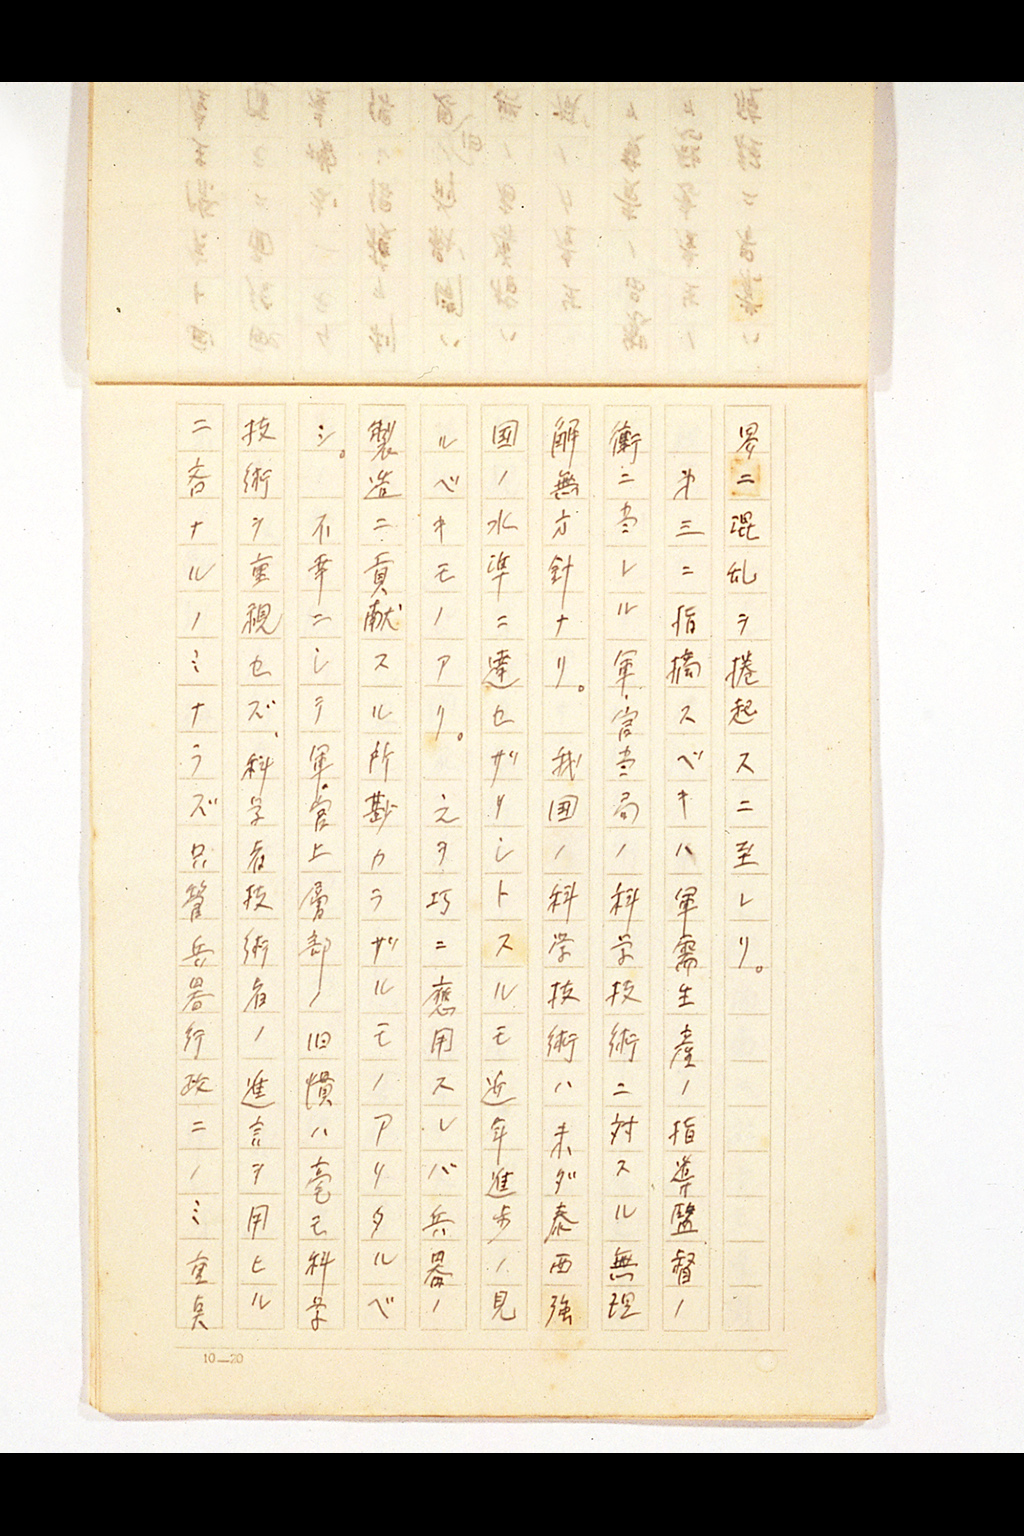 界ニ混乱ヲ捲起スニ至レリ。
第三ニ指摘スベキハ軍需生産ノ指導監督ノ
衝ニ当レル軍官当局ノ科学技術ニ対スル無理
解無方針ナリ。我国ノ科学技術ハ未ダ泰西強
国ノ水準ニ達セザリシトスルモ近年進歩ノ見
ルベキモノアリ。之ヲ巧ニ應用スレバ兵器ノ
製造ニ貢献スル所尠カラザルモノアリタルベ
シ。不幸ニシテ軍官上層部ノ旧慣ハ毫モ科学
技術ヲ重視セズ、科学者技術者ノ進言ヲ用ヒル
ニ吝ナルノミナラズ只管兵器行政ニノミ重点
10—20